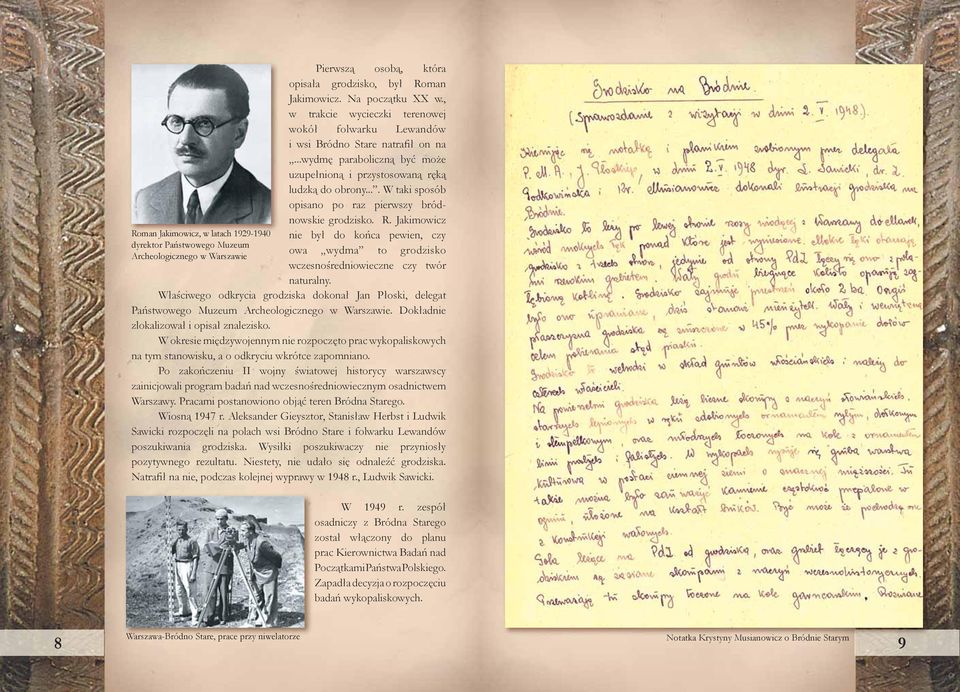 Pierwszą osobą, która
opisała grodzisko, był Roman
Jakimowicz. Na początku XX w.,
w trakcie wycieczki terenowej
wokół folwarku Lewandów
i wsi Bródno Stare natrafił on na
„...wydmę paraboliczną być może
uzupełnioną i przystosowaną ręką
ludzką do obrony...”. W taki sposób
opisano po raz pierwszy bród-
nowskie grodzisko. R. Jakimowicz
nie był do końca pewien, czy
owa „wydma” to grodzisko
wczesnośredniowieczne czy twór
naturalny.
Roman Jakimowicz, w latach 1929-1940
dyrektor Państwowego Muzeum
Archeologicznego w Warszawie
Właściwego odkrycia grodziska dokonał Jan Płoski, delegat
Państwowego Muzeum Archeologicznego w Warszawie. Dokładnie
zlokalizował i opisał znalezisko.
W okresie międzywojennym nie rozpoczęto prac wykopaliskowych
na tym stanowisku, a o odkryciu wkrótce zapomniano.
Po zakończeniu II wojny światowej historycy warszawscy
zainicjowali program badań nad wczesnośredniowiecznym osadnictwem
Warszawy. Pracami postanowiono objąć teren Bródna Starego.
Wiosną 1947 r. Aleksander Gieysztor, Stanisław Herbst i Ludwik
Sawicki rozpoczęli na polach wsi Bródno Stare i folwarku Lewandów
poszukiwania grodziska. Wysiłki poszukiwaczy nie przyniosły
pozytywnego rezultatu. Niestety, nie udało się odnaleźć grodziska.
Natrafił na nie, podczas kolejnej wyprawy w 1948 r., Ludwik Sawicki.
W 1949 r. zespół
osadniczy z Bródna Starego
został włączony do planu
prac Kierownictwa Badań nad
Początkami Państwa Polskiego.
Zapadła decyzja o rozpoczęciu
badań wykopaliskowych.
Warszawa-Bródno Stare, prace przy niwelatorze
8
Grodzisko na Bródnie.
(Sprawozdanie z wizytacji w dniu 2.V.1948.).
Kierując się notatką i planikiem zrobionym przez delegata
P. M. A., J. Płoskiego w dniu 2.V.1948 dyr. L. Sawicki, dr. Z.
Podkowińska i Kr. Musianowicz dokonali lustracji grodziska na
Bródnie.
Grodzisko to leży po lewej stronie szosy wiodącej z Warszawy do Marek,
wśród mokrych łąk ponad które jest wyniesione. Mokre łąki otaczają
grodzisko z trzech stron, jedynie od strony Pd Z łączy się ono z pola-
mi szerokim grzbietem. Wały grodu biegnące kolisto opasują zag-
łębioną kotlinę. Grodzisko zajmuje przestrzeń około 2 ha. Ongiś
było ono uprawiane, dziś stanowi nieużytek. Wały i wewnętrzna
piaszczysta grodziska są zniszczone w 45% przez wykopanie dołów
celem pobierania stąd piasku.
Grodzisko to wchodzi w skład gruntów włościańskich i należy do
czterech właścicieli.
Na powierzchni grodziska leżą liczne skorupy z naczyń słowiańskich,
starszych lepionych w ręku zdobionych ornamentem rytym, dołkowym
i stempelkowym, oraz młodszych toczonych na kole z ornamentem
linii prostych i falistych. W wykopach widzi się grubą warstwę
kulturową w postaci ciemnej ziemi o znacznej miąższości. Tu
także można było zauważyć kamienie częstokroć przepalone w
ogniu, ułożone na kształt bruków. Być może że pochodzą one
z konstrukcji wałowych.
Pola leżące na Pd Z od grodziska, oraz grzbiet łączący je z gro-
dziskiem są zasiane skorupami z naczyń wczesnohistorycznych.
Przeważają tu skorupy toczone na kole garncarskim. Również
Notatka Krystyny Musianowicz o Bródnie Starym
9